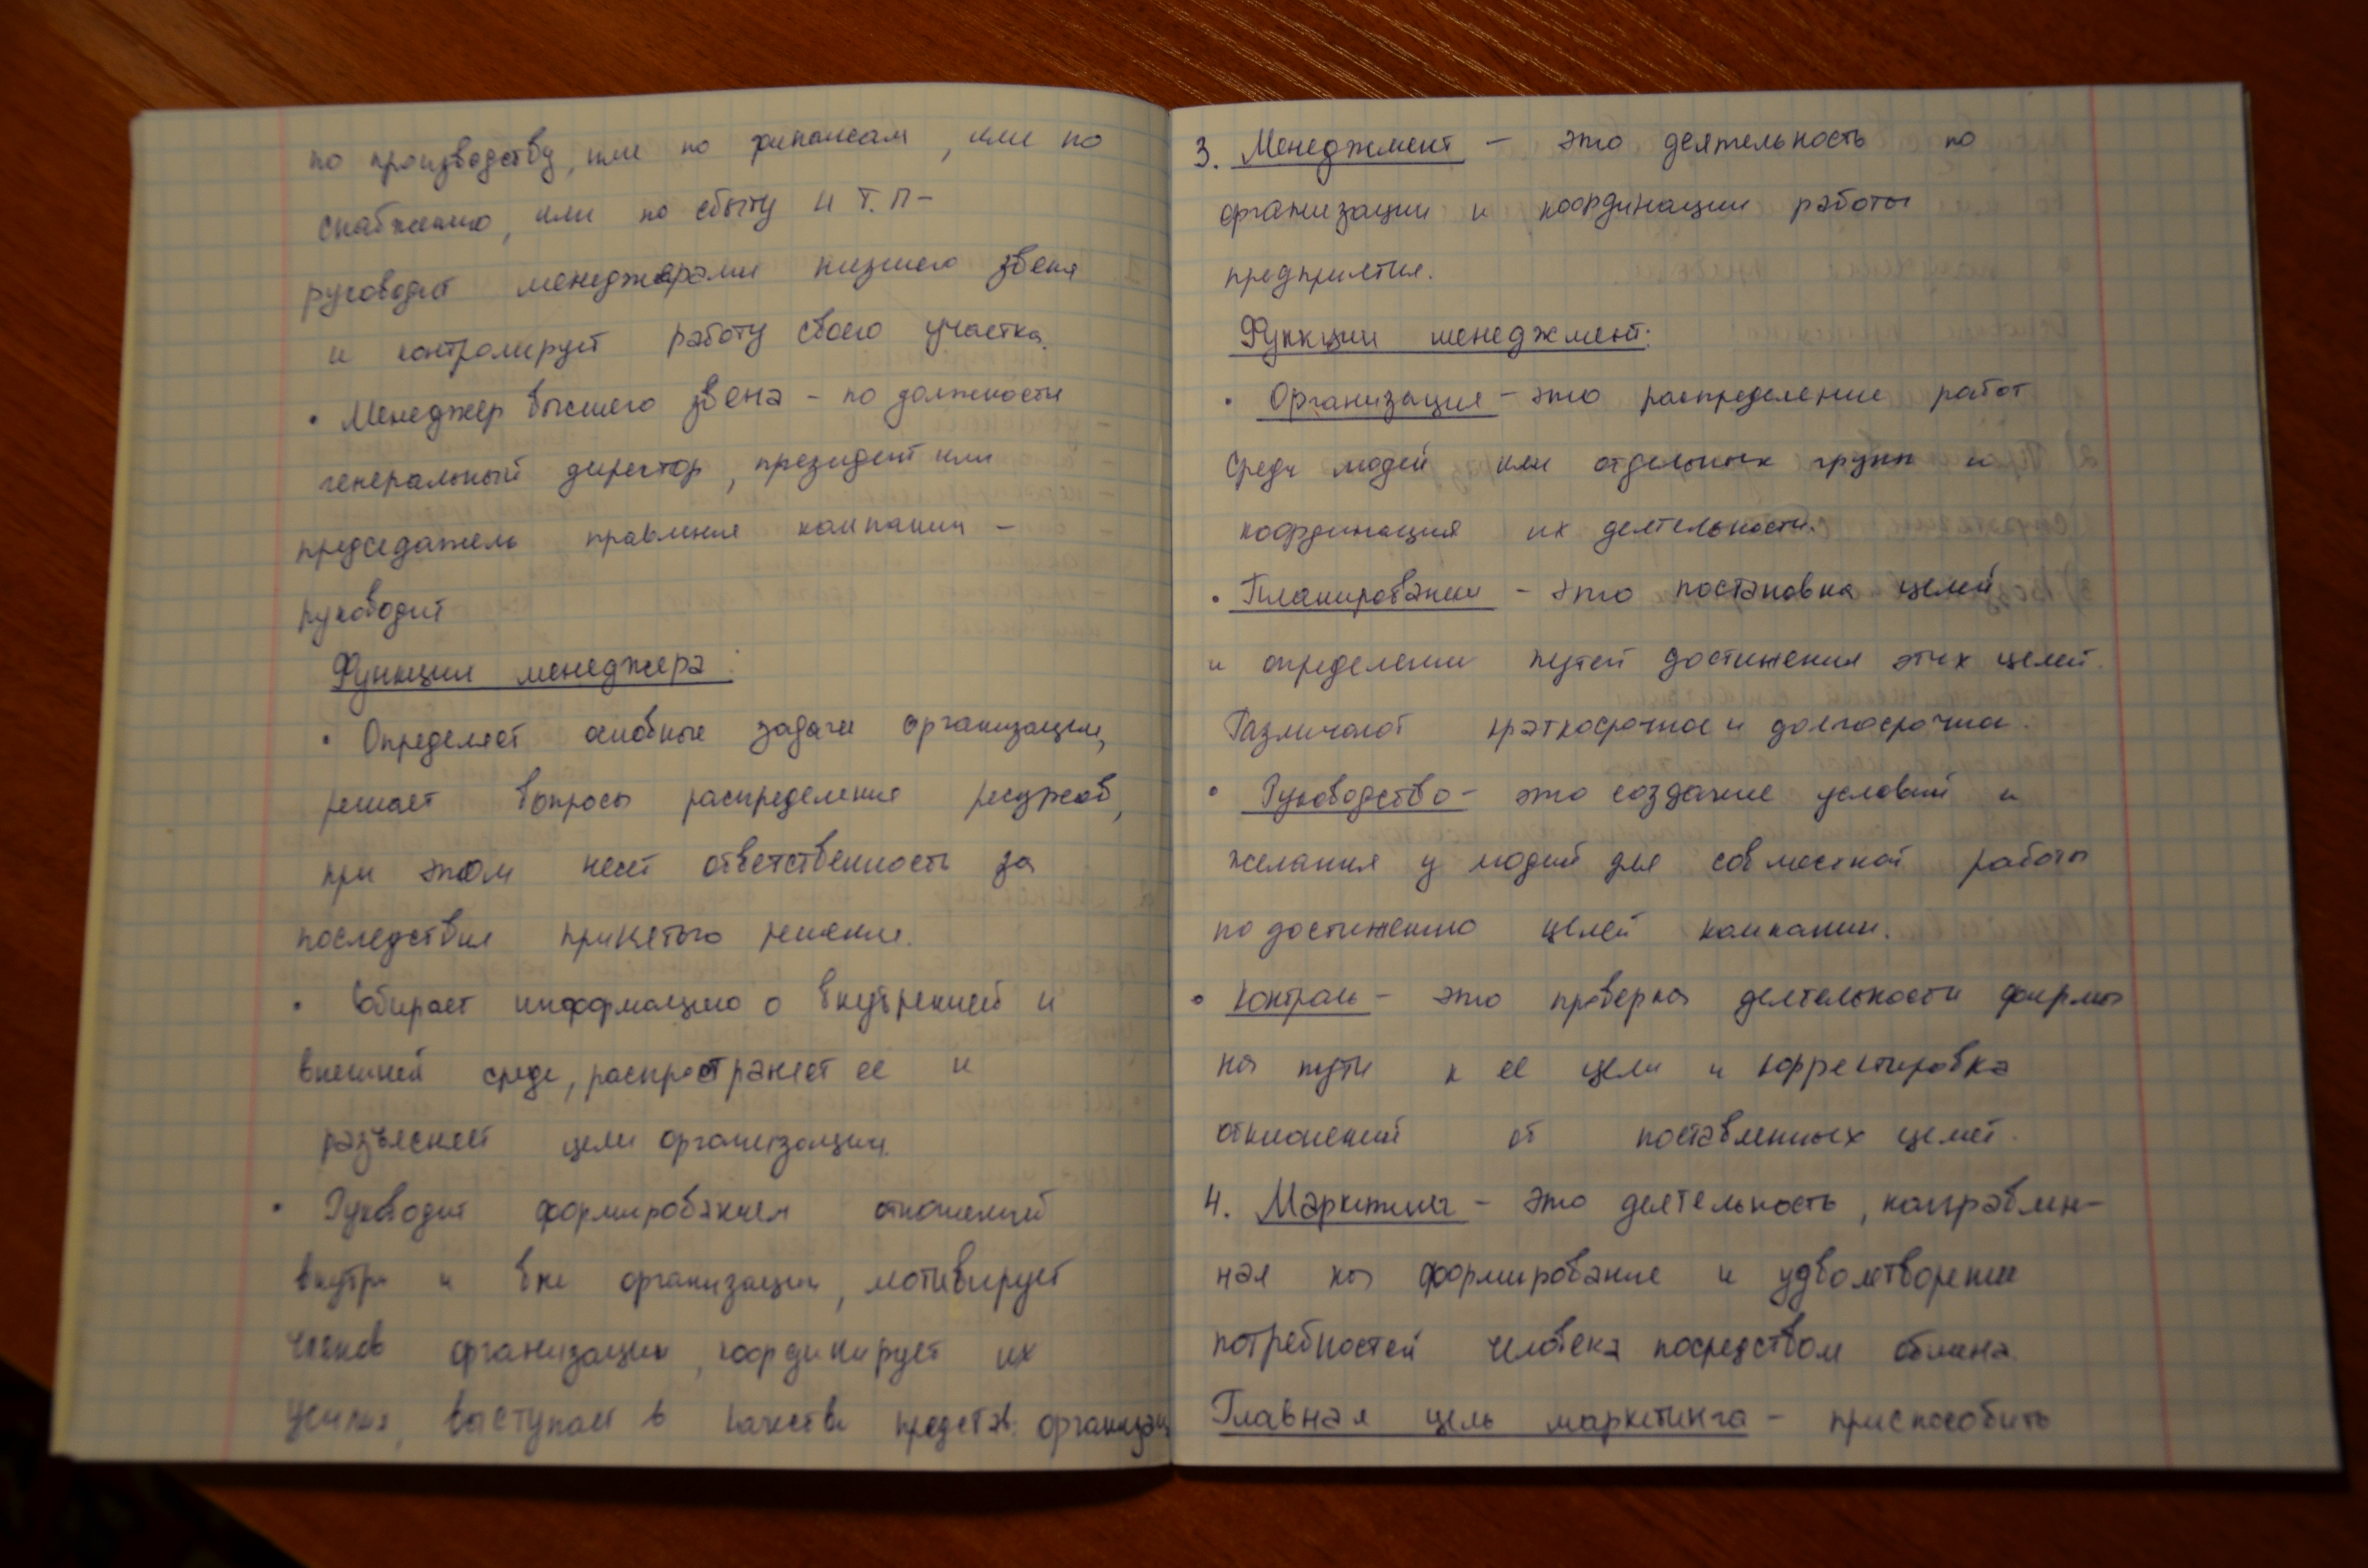 по производству, или по финансам, или по
снабжению, или по сбыту и т.п-
руководит менеджерами низшего звена
и контролирует работу своего участка.
• Менеджер высшего звена - по должности
генеральный директор, президент или
председатель правления компании -
руководит
Функции менеджера:
• Определяет основные задачи организации,
решает вопросы распределения ресурсов,
при этом несет ответственность за
последствия принятого решения.
• Собирает информацию о внутренней и
внешней среде, распространяет ее и
разъясняет цели организации.
• Руководит формированием отношений
внутри и вне организации, мотивирует
членов организации, координирует их
усилия, выступает в качестве представ. организац
3. Менеджмент - это деятельность по
организации и координации работы
предприятия.
Функции менеджмент:
• Организация - это распределение работ
среди людей или отдельных групп и
координация их деятельности.
• Планирование - это постановка целей
и определение путей достижения этих целей.
Различают краткосрочное и долгосрочное.
• Руководство - это создание условий и
желания у людей для совместной работы
по достижению целей компании.
• Контроль - это проверка деятельности фирмы
на пути к ее цели и корректировка
отклонений от поставленных целей.
4. Маркетинг - это деятельность, направлен-
ная на формирование и удволетворение
потребностей человека посредством обмена.
Главная цель маркетинга - приспособить